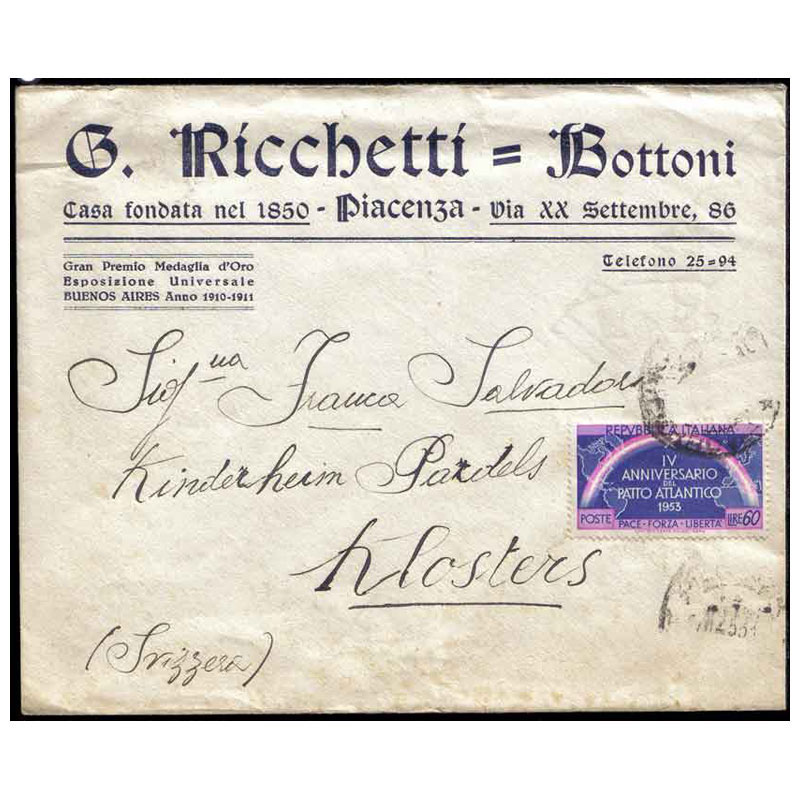 G. Ricchetti = Bottoni
Casa fondata nel 1850 - Piacenza - Via XX Settembre, 86
Gran Premio Medaglia d'Oro
Esposizione Universale
BUENOS AIRES Anno 1910-1911
Telefono 25=94
Sig.na Franca Salvadori
Kinderheim Pardels
Klosters
(Svizzera)
REPVBBLICA ITALIANA
IV
ANNIVERSARIO
DEL
PATTO ATLANTICO
1953
POSTE PACE·FORZA·LIBERTA' LIRE 60